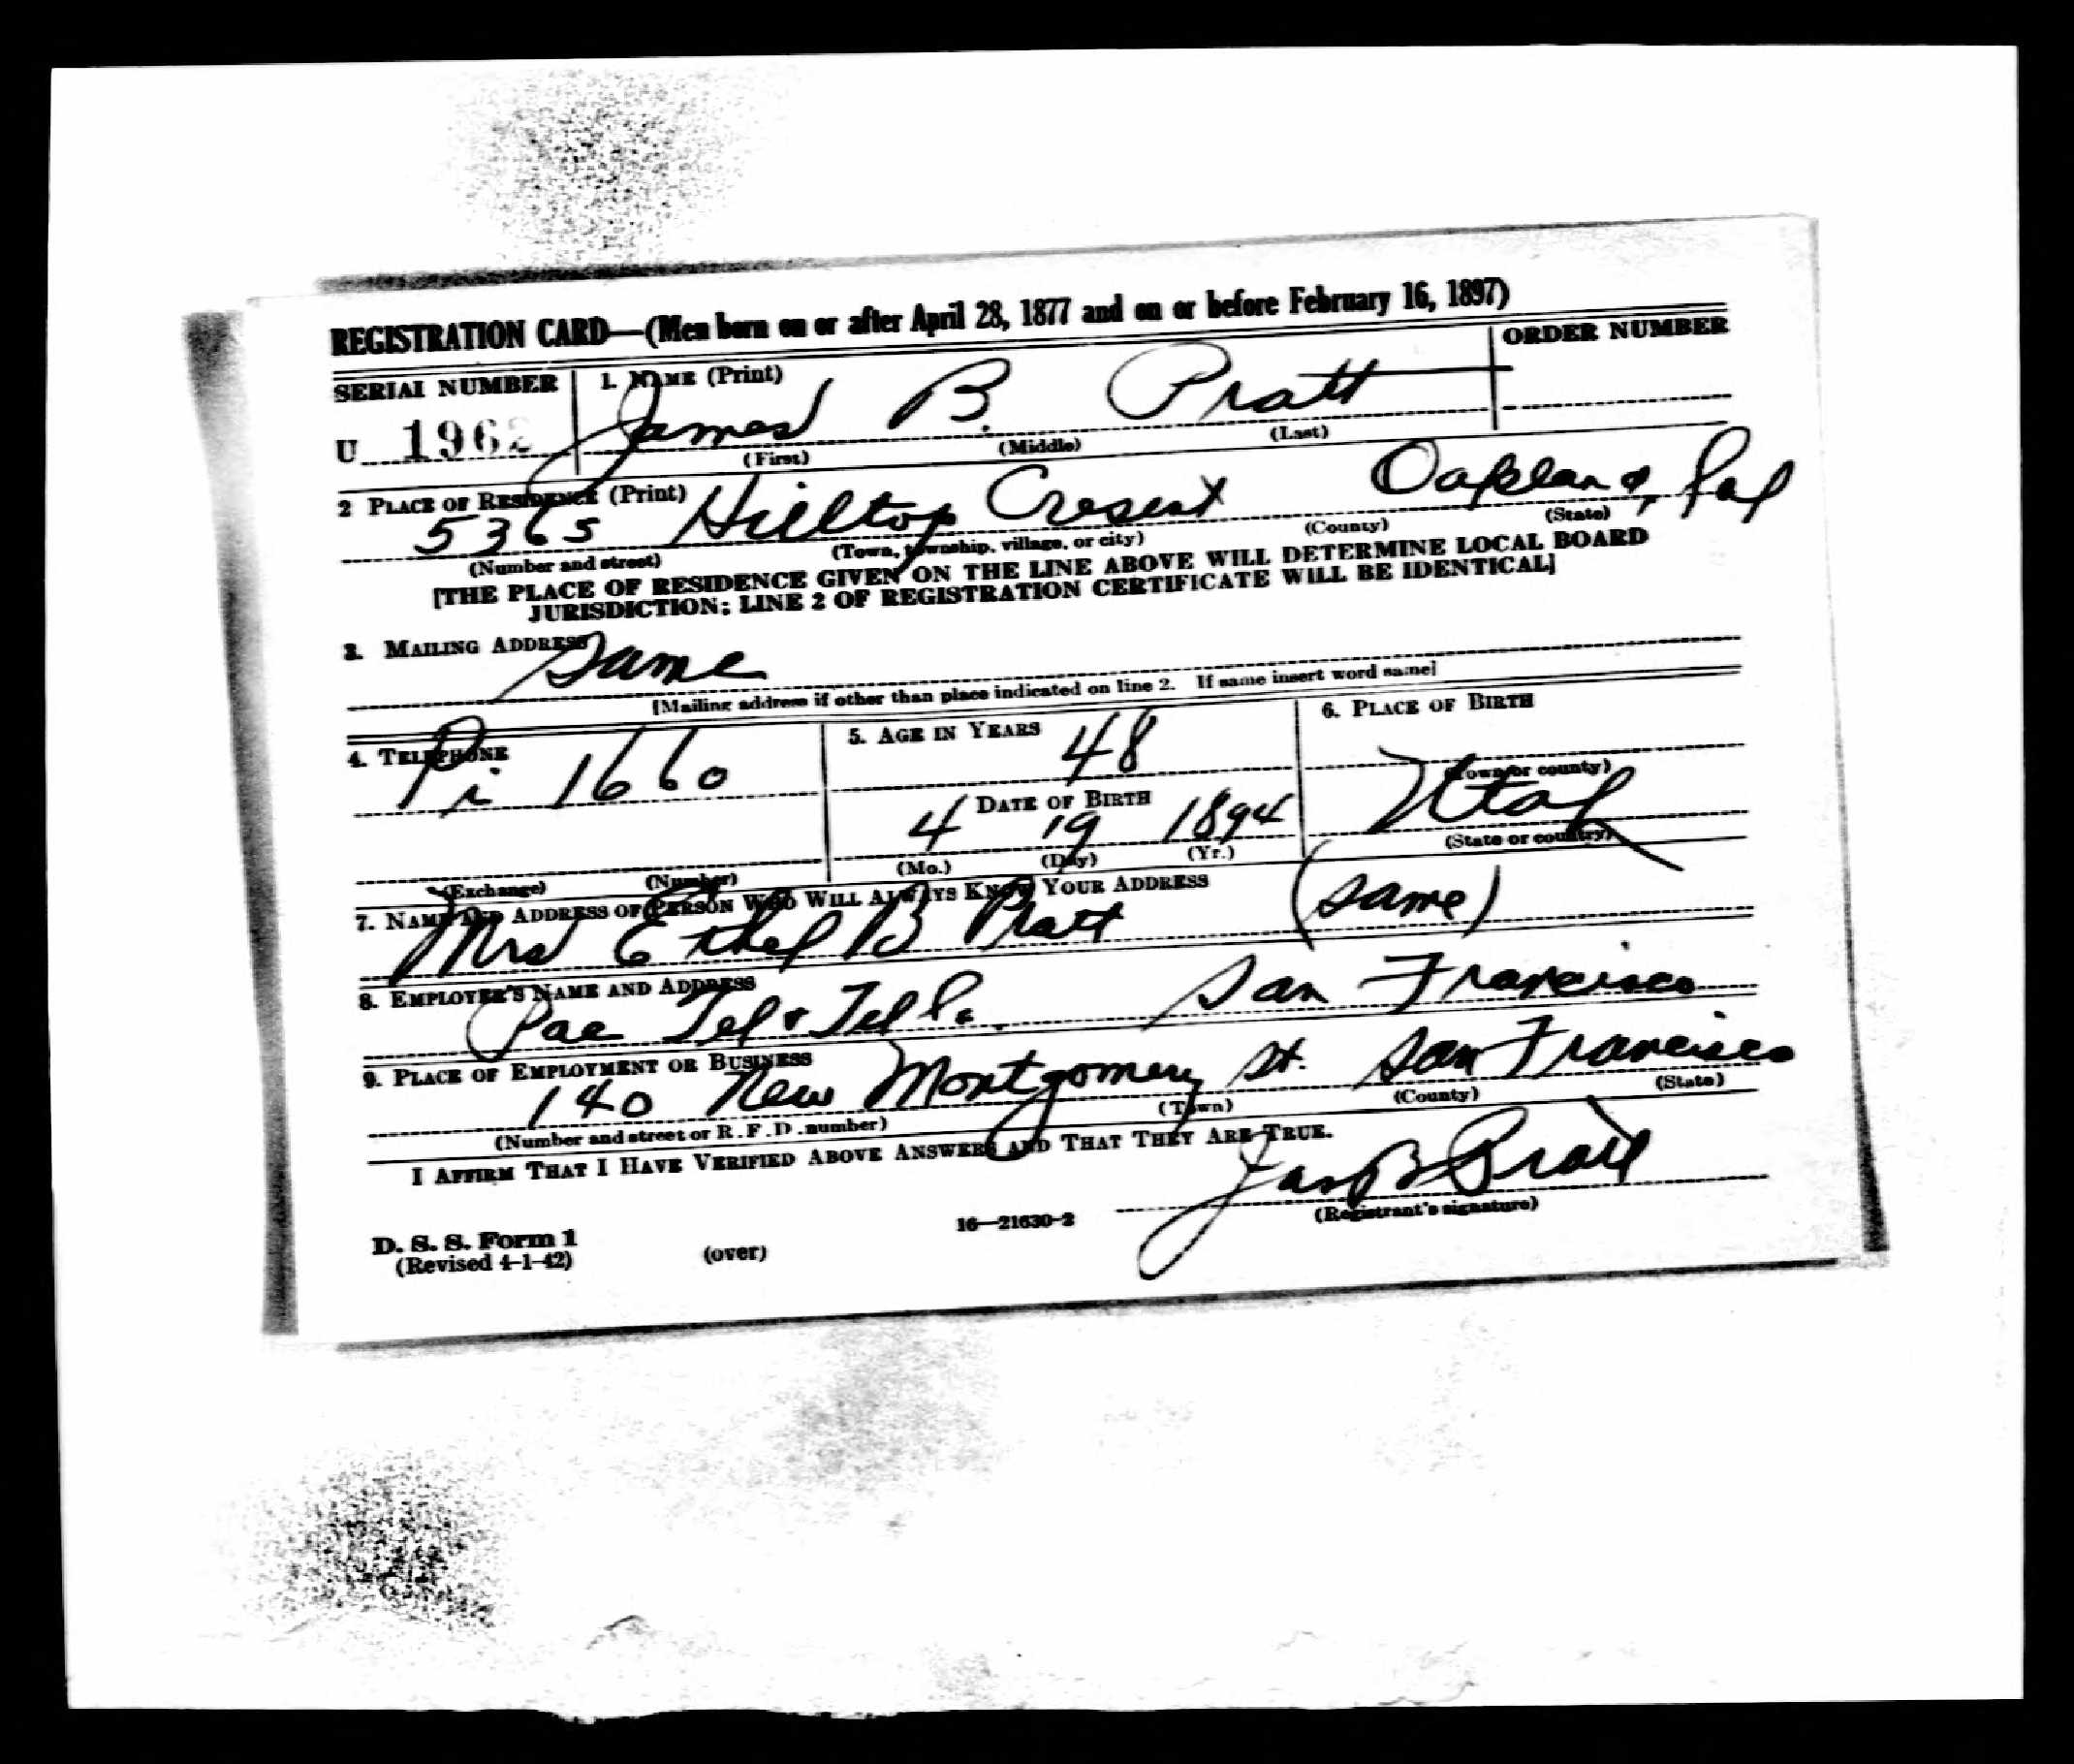 REGISTRATION CARD—(Men born on or after April 28, 1877 and on or before February 16, 1897)
SERIAL NUMBER 1. NAME (Print) ORDER NUMBER
U 1962 James B. Pratt
(First) (Middle) (Last)
2 PLACE OF RESIDENCE (Print)
5365 Hilltop Cresent Oakland, Cal
(Number and street) (Town, township, village, or city) (County) (State)
[THE PLACE OF RESIDENCE GIVEN ON THE LINE ABOVE WILL DETERMINE LOCAL BOARD
JURISDICTION; LINE 2 OF REGISTRATION CERTIFICATE WILL BE IDENTICAL]
3. MAILING ADDRESS
Same
[Mailing address if other than place indicated on line 2. If same insert word same]
4. TELEPHONE 5. AGE IN YEARS 6. PLACE OF BIRTH
Pi 1660 48
(Town or county)
DATE OF BIRTH
4 19 1894 Utah
(Exchange) (Number) (Mo.) (Day) (Yr.) (State or country)
7. NAME AND ADDRESS OF PERSON WHO WILL ALWAYS KNOW YOUR ADDRESS
Mrs Ethel B Pratt (same)
8. EMPLOYER'S NAME AND ADDRESS
Pac Tel & Tel Co. San Francisco
9. PLACE OF EMPLOYMENT OR BUSINESS
140 New Montgomery St. San Francisco
(Number and street or R. F. D. number) (Town) (County) (State)
I AFFIRM THAT I HAVE VERIFIED ABOVE ANSWERS AND THAT THEY ARE TRUE.
Jas B Pratt
D. S. S. Form 1 16—21630-2 (Registrant's signature)
(Revised 4-1-42) (over)